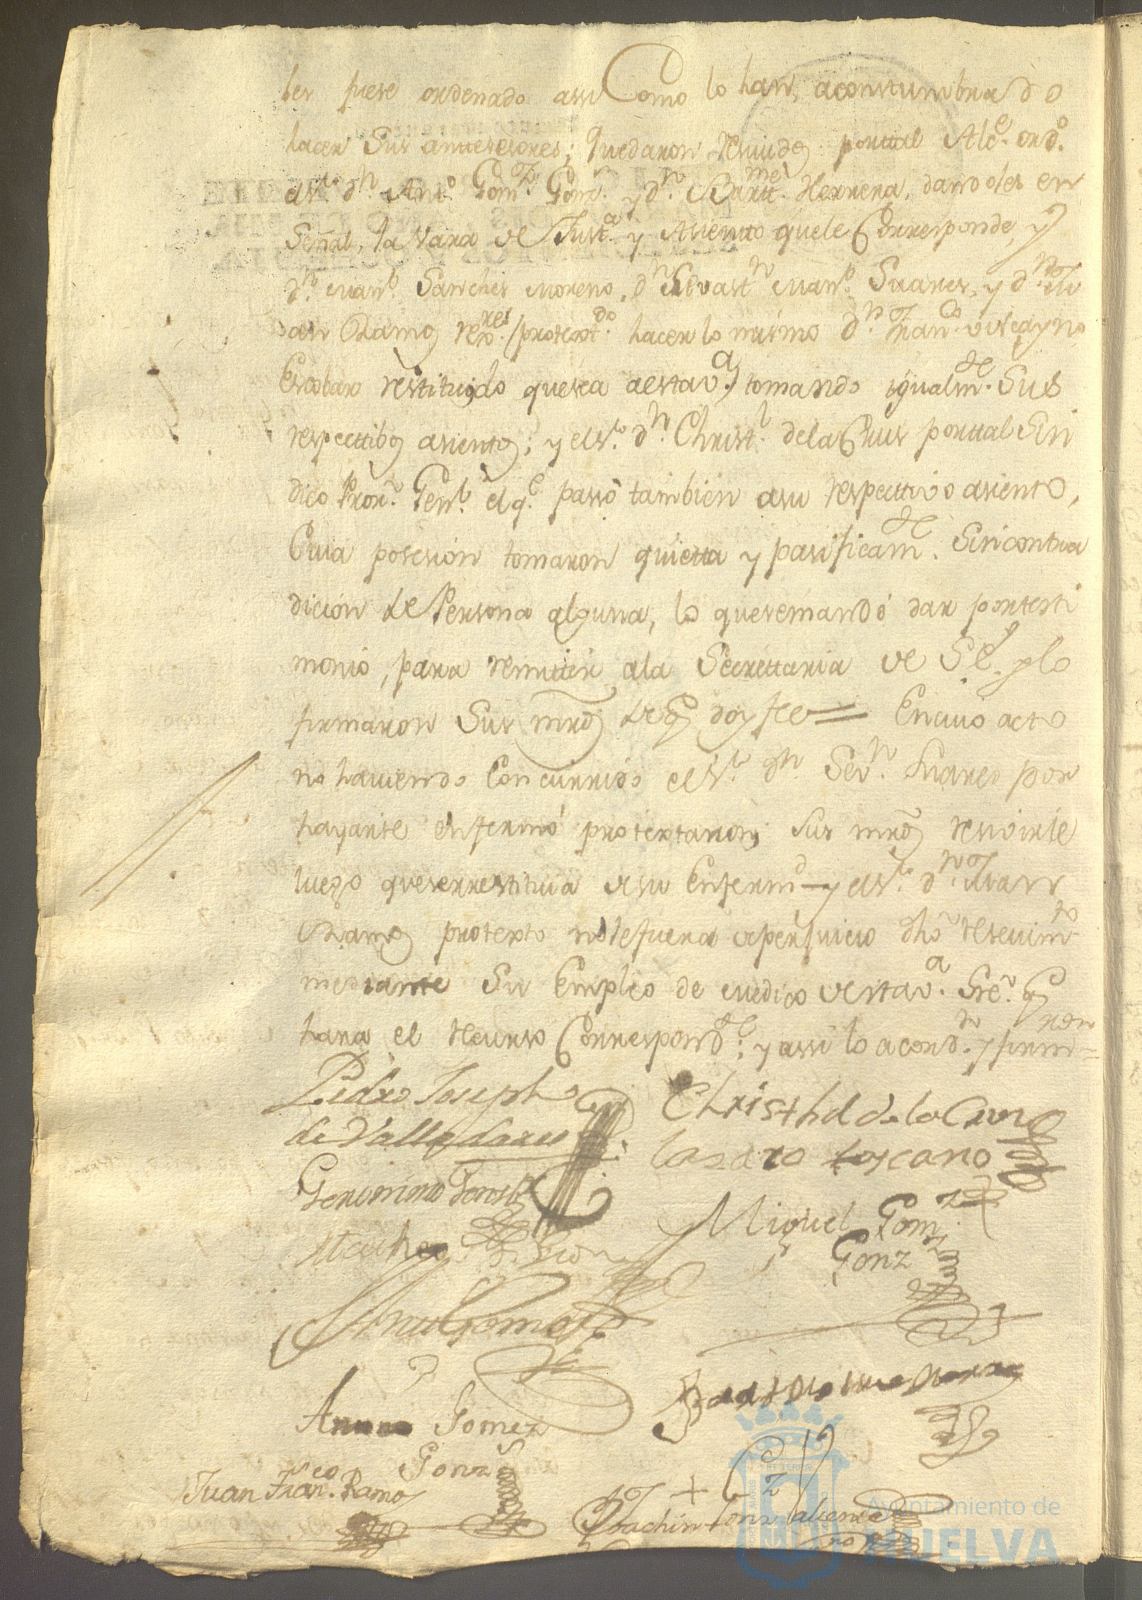 les fuese ordenado assi Como lo han acostumbrado
hacer Sus antesesores; quedaron resiuidos por tal Alc.e ord.o
el s.r d.n Ant.o Gom.z Gonz.z y d.n Bartt.me Herrera, dandoles en
Señal, la vara de Just.a y Asiento que le Corresponde, y
d.n Man.l Sanches Moreno, d.n Sevast.n Man.l Suares, y d.n Ju
an Ramos rex.res protext.do hacer lo mismo d.n Fran.co viscayno
Escobar restituydo que sea a esta v.a tomando igualm.te Sus
respecttibos asientos; y el s.r d.n Christ.l de la Crus por tal Sin
dico Pror. Gen.l el q.e passó tambien a su respecttivo asiento,
Cuia posesión tomaron quietta y pasificam.te Sin contra
dición de Persona alguna, lo que se mandó dar por testi
monio, para remitir a la Secrettaria de S.E. y lo
firmaron Sus mrds de q doy fee = En cuio acto
no haviendo Concurrido el s.r d.n Sev.n Suares por
hayarse enfermo protextaron sus mrds resivirle
luego que se rrestituia de su Enferm.d y el s.r d.n Juan
Ramos protexto no le fuera de perjuicio dho resevim.to
mediante Su Empleo de medico de esta v.a Sre. q
hara el recurso Correspond.te; y assi lo acord.n y firm.ron=
Pedro Joseph
de Valladares
Christhl de la Cruz
Lazaro toscano
Geronimo
Miguel Gom.z
Gonz
Matheo
Bartolome Herrera
Antto Gomez
Gonz
Juan Fran.co Ramos
Joachin Gonz Valiente
Ayuntamiento de
HUELVA